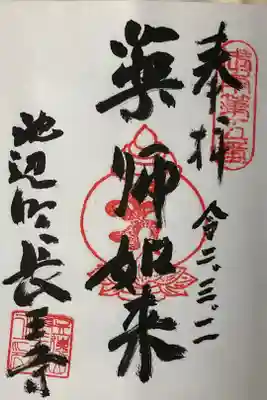 奉拝
令二.三.
薬師如来
池辺
長王寺